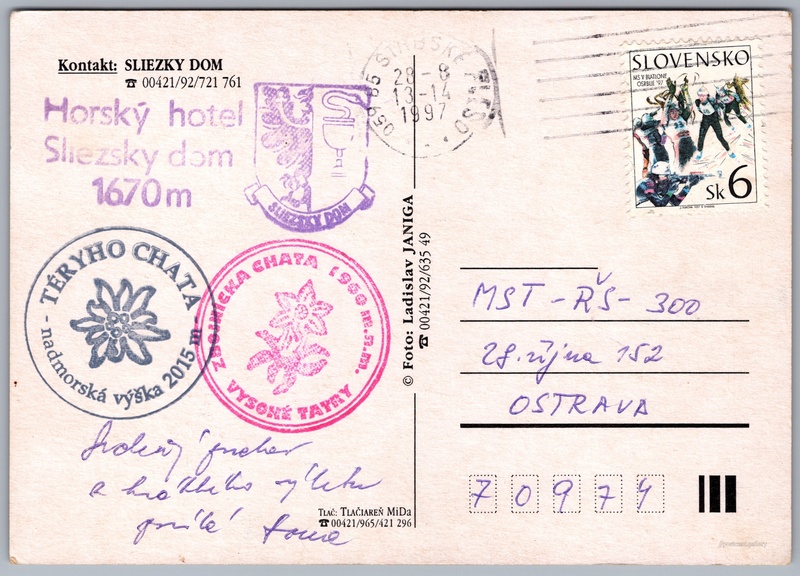 Kontakt: SLIEZKY DOM
☎ 00421/92/721 761
Horský hotel
Sliezsky dom
1670 m
SLIEZSKY DOM
TÉRYHO CHATA
- nadmorská výška 2015 m -
ZBOJNÍCKA CHATA 1960 m.n.m.
VYSOKÉ TATRY
Srdečný
a krátkého výletu
© Foto: Ladislav JANIGA
☎ 00421/92/635 49
Tlač: Tlačiareň MiDa
☎ 00421/965/421 296
059 85 ŠTRBSKÉ PLESO
28 - 8
13 - 14
1997
SLOVENSKO
MS V BIATLONE
OSRBLIE '97
Sk 6
MST - RŠ - 300
28. října 152
OSTRAVA
7 0 9 7 4